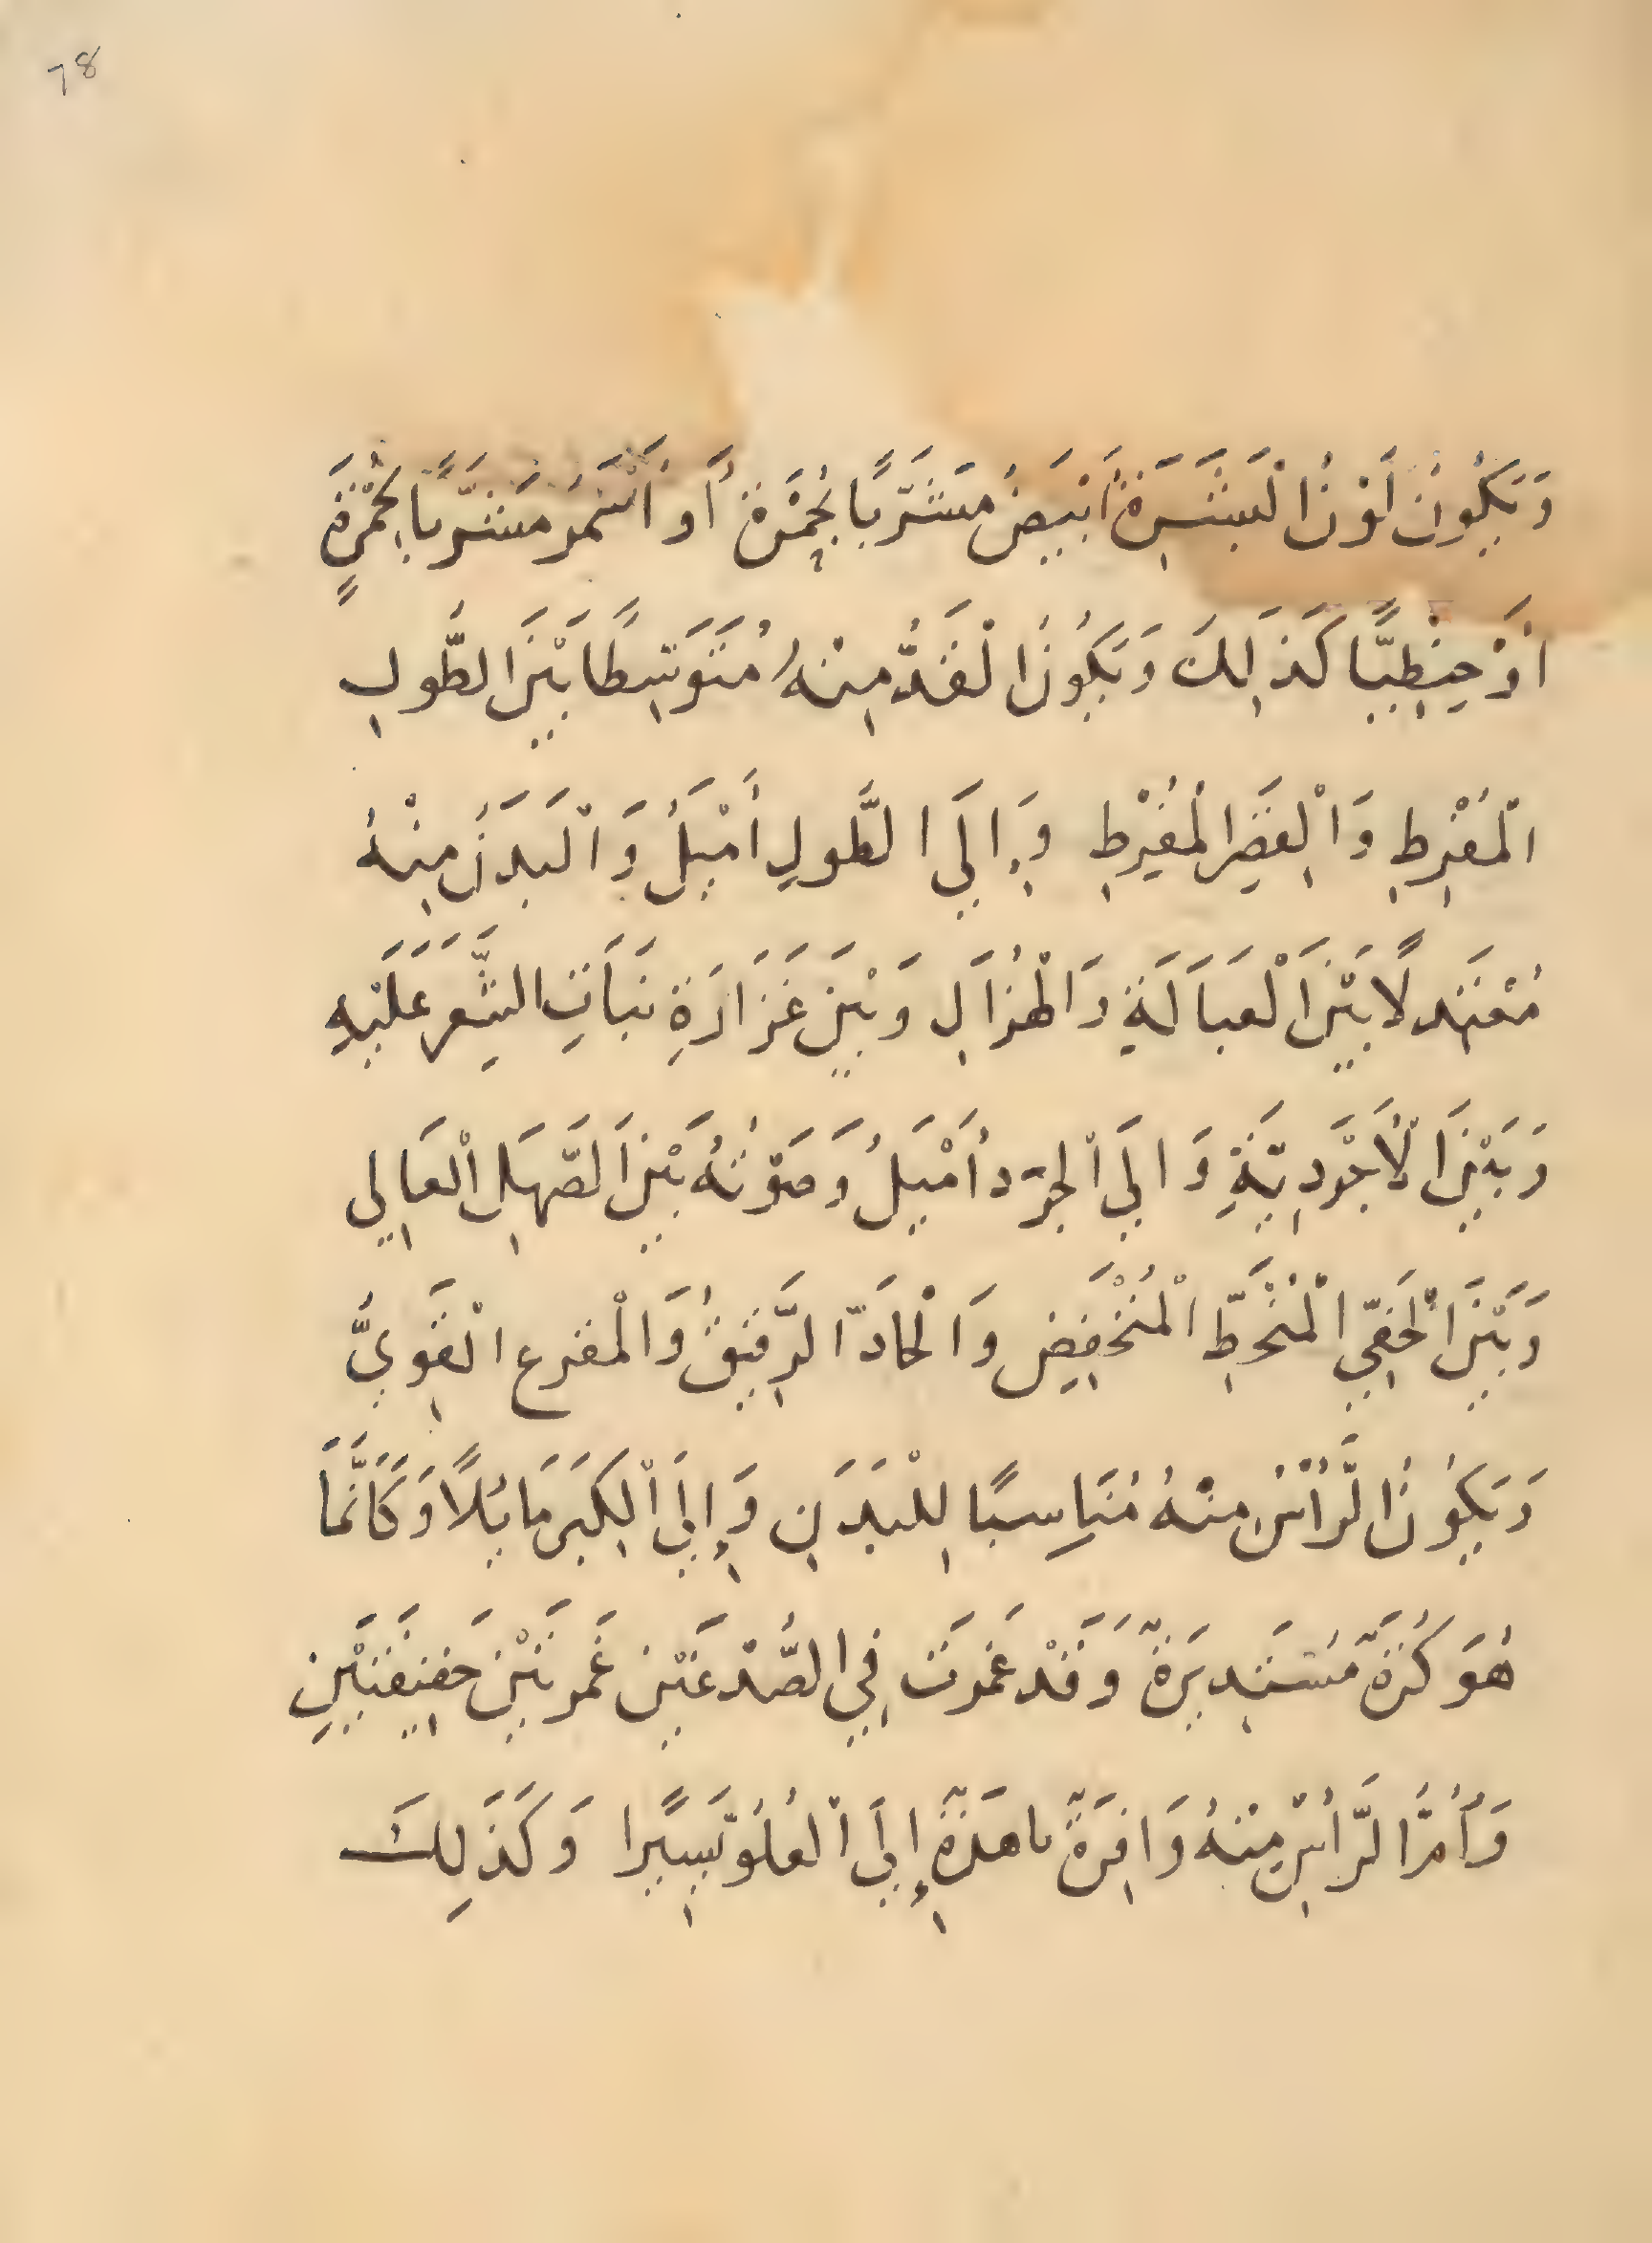 78
وَيَكُونُ لَوْنُ الْبَشَرَةِ أَبْيَضُ مُشَرَّبًا بِحُمْرَةٍ أَو أَسْمَرُ مشَرَّبًا بِحُمْرَةٍ
اَوْ حِنْطِيًّا كَذَالِكَ وَيَكُونُ الْقَدُّ مِنْهُ مُتَوَسِطًا بَيْنَ الطُّولِ
الْمُفْرِطِ وَالْقِصَرِ الْمُفْرِطِ وَإِلَي الطُّولِ أَمْيَلُ وَالْبَدَنُ مِنْهُ
مُعْتَدلًا بَيْنَ الْعَبَالَةِ وَالْهُزَالِ وَبَيْنَ غَزَارَةِ نَبَاتِ الشَّعَرِ عَلَيْهِ
وَبَيْنَ الْأَجْرَدِيَّةِ وَالَي الْجَرَد أَمْيَلُ وَصَوْتُهُ بَيْنَ الصَّهَلِ الْعَالِي
وَبَيْنَ الْخَفِيِّ الْمُنْحَطِّ الْمُنْخَفِضِ وَالْحَادّ الرَّقِيقُ وَالْمقرع الْقَوِيُّ
وَيَكُونُ الرَّأْسُ مِنْهُ مُنَاسِبًا لِلْبَدَنِ وَإِلَي الْكِبَرِ مَائِلًا وَكَأَنَّمَا
هُوَ كُرَةٌ مُسْتَدِيرَةٌ وَقَدْ غَمَرَت فِي الصُّدْغَيْنِ غَمْرَتَيْنِ خَفِيفَتَيْنِ
وَأُمُّ الرَّأْسِ مِنْهُ وَافِرَةٌ ناهدَةٌ إِلَي الْعُلُوِّ يَسِيرًا وَكَذَلِكَ